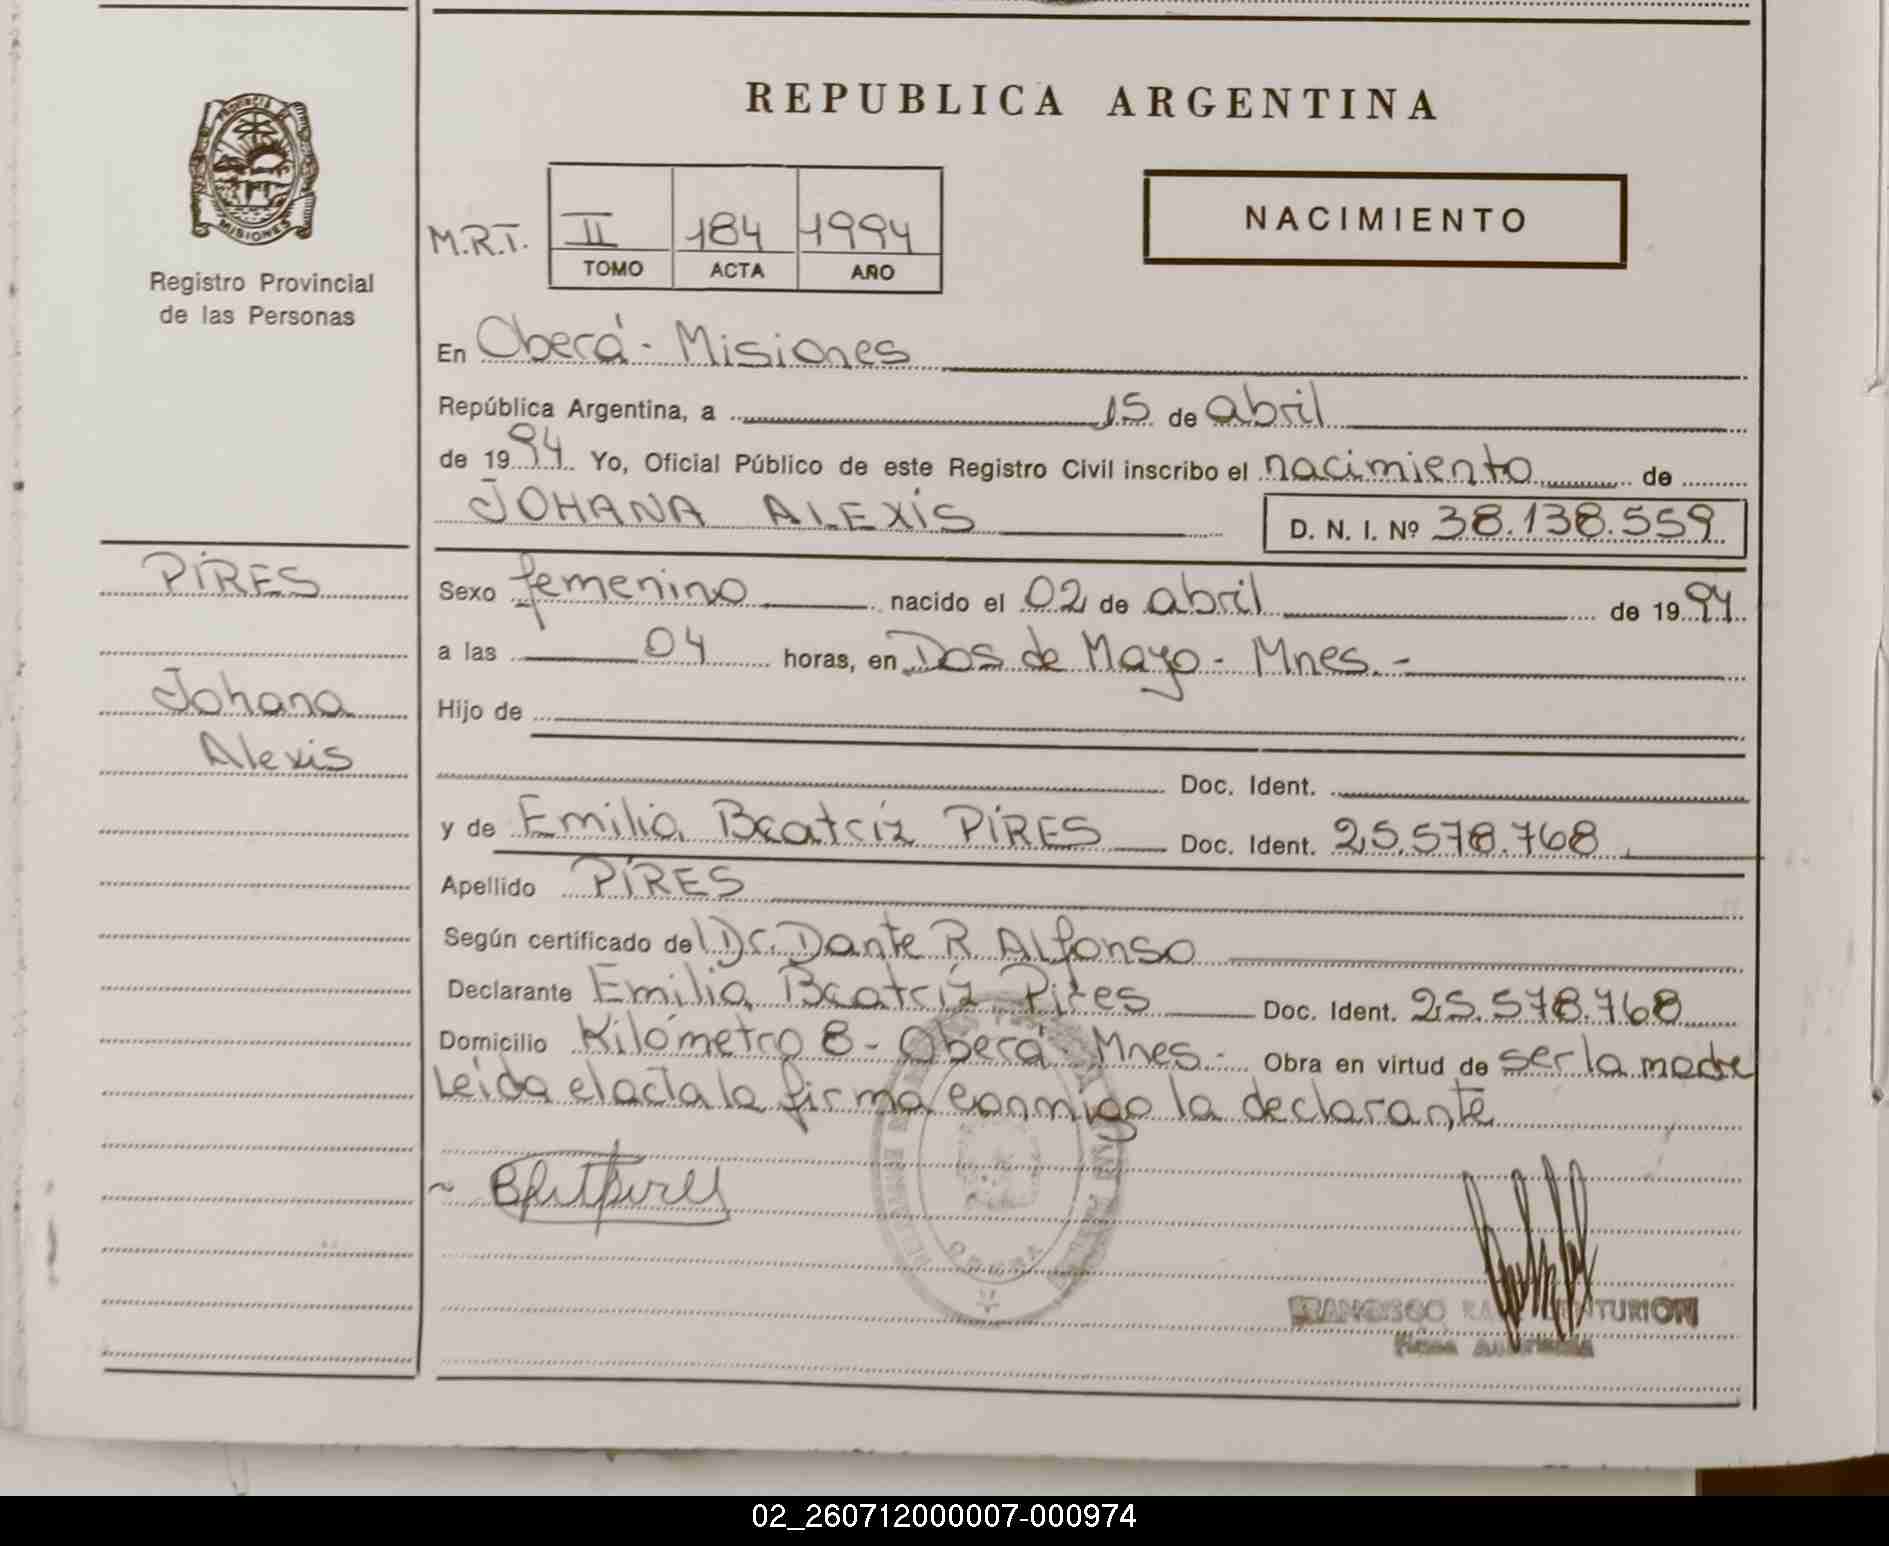 REPUBLICA ARGENTINA
PROVINCIA DE MISIONES
Registro Provincial
de las Personas
M.R.T.
II 184 1994
TOMO ACTA AÑO
NACIMIENTO
En Oberá - Misiones
República Argentina, a 15 de abril
de 1994 Yo, Oficial Público de este Registro Civil inscribo el nacimiento de
JOHANA ALEXIS D. N. I. Nº 38.138.559
PIRES
Johana
Alexis
Sexo femenino nacido el 02 de abril de 1994
a las 04 horas, en Dos de Mayo - Mnes. -
Hijo de
Doc. Ident.
y de Emilia Beatríz PIRES Doc. Ident. 25.578.768
Apellido PIRES
Según certificado del Dr. Dante R. Alfonso
Declarante Emilia Beatríz Pires Doc. Ident. 25.578.768
Domicilio Kilómetro 8 - Oberá Mnes - Obra en virtud de ser la madre
Leída el acta la firma conmigo la declarante
OBERA
FRANCISCO CENTURION
02_260712000007-000974